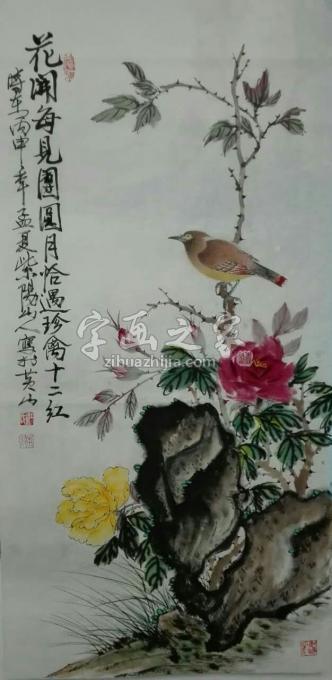 花開每見團圓月恰遇珍禽十二紅
時在丙申年孟夏紫陽山人寫於黃山
字画之家
zihuazhijia.com